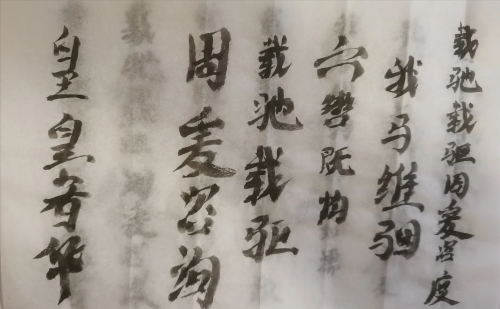 载驰载驱周爰咨度
我马维骃
六辔既均
载驰载驱
周爰咨询
皇皇者华